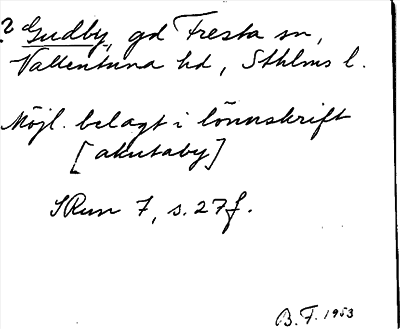 ? Gudby, gd Fresta sn,
Vallentuna hd, Sthlms l.
Möjl. belagt i lönnskrift
[akutaby]
SRun 7, s. 27f.
B.F. 1953